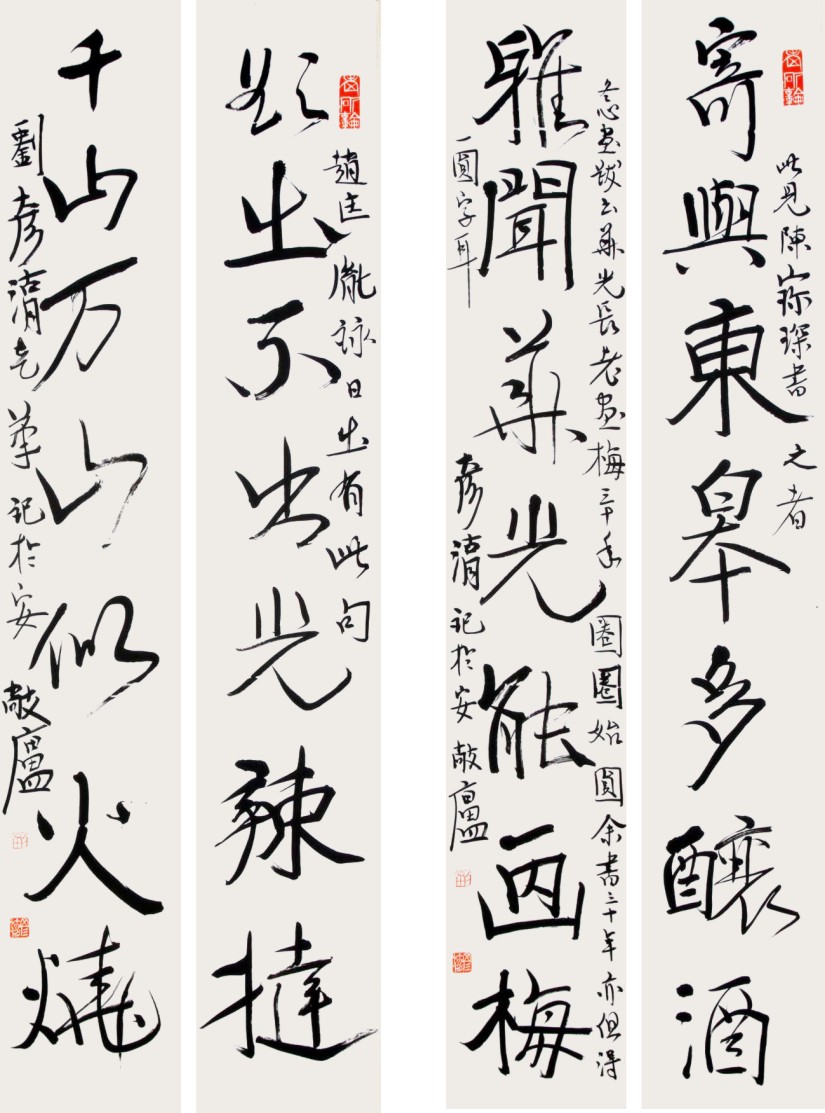 寄與東皋多釀酒
此見陳寐琛書之者
雖聞華光能画梅
畫跋云華光長老畫梅三十年圈圈始圓余書三十年亦但得
一圓字耳
彥湖記於安敞廬
欲出不出光辣撻
趙匡胤詠日出有此句
千山万山似火燒
劉彥湖
記於安敞廬